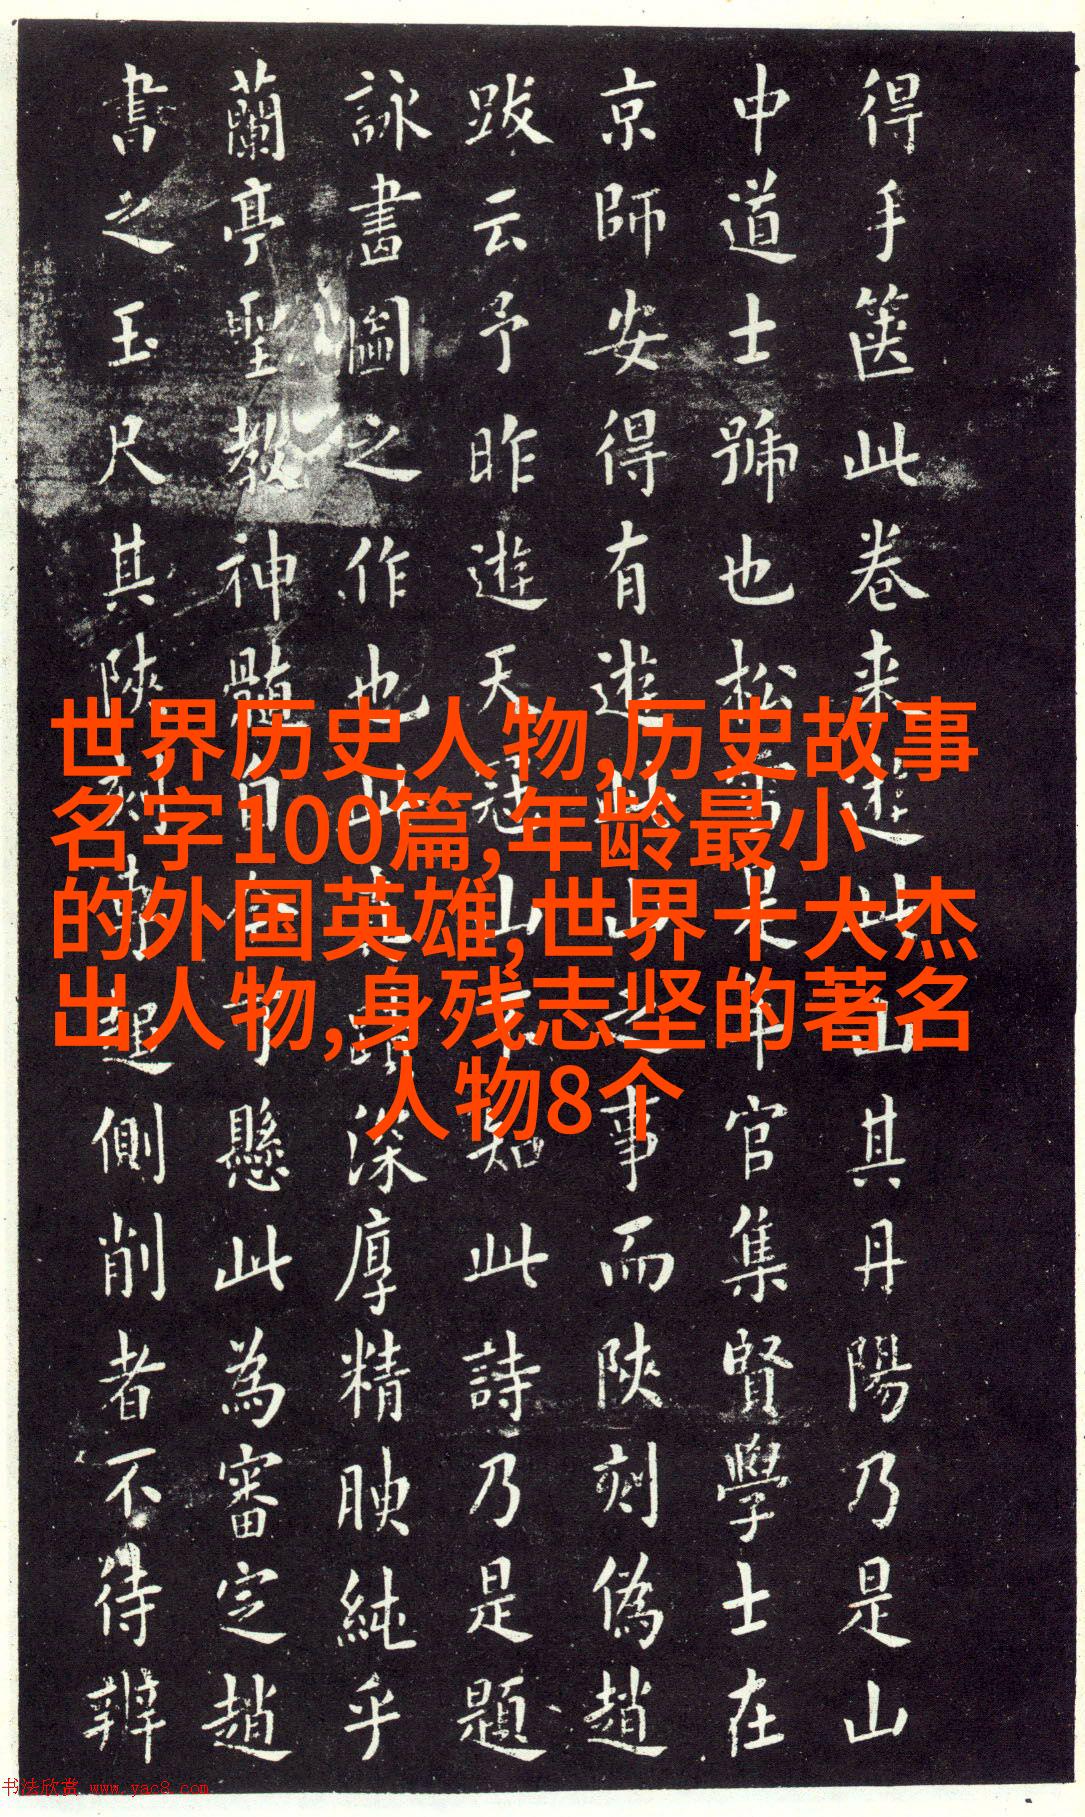 得手篋此卷来遊此山其丹陽乃是山
中道士號也松雪是年官集賢學士在
京師安得有遊此山之事而陝刻偽趙
跋云予昨遊天冠山知此詩乃是題
詠畫圖之作也此跡深厚精腴純乎
蘭亭聖教神髓自今可懸此為審定趙
書之玉尺其陝刻側削者不待辨
世界历史人物,历史故事
名字100篇,年龄最小
的外国英雄,世界十大杰
出人物,身残志坚的著名
人物8个
书法欣赏 www.yac8.com